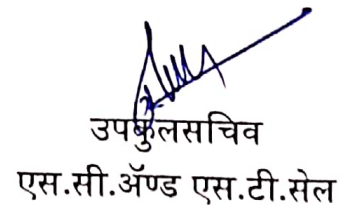 उपकुलसचिव
एस.सी.ॲण्ड एस.टी.सेल